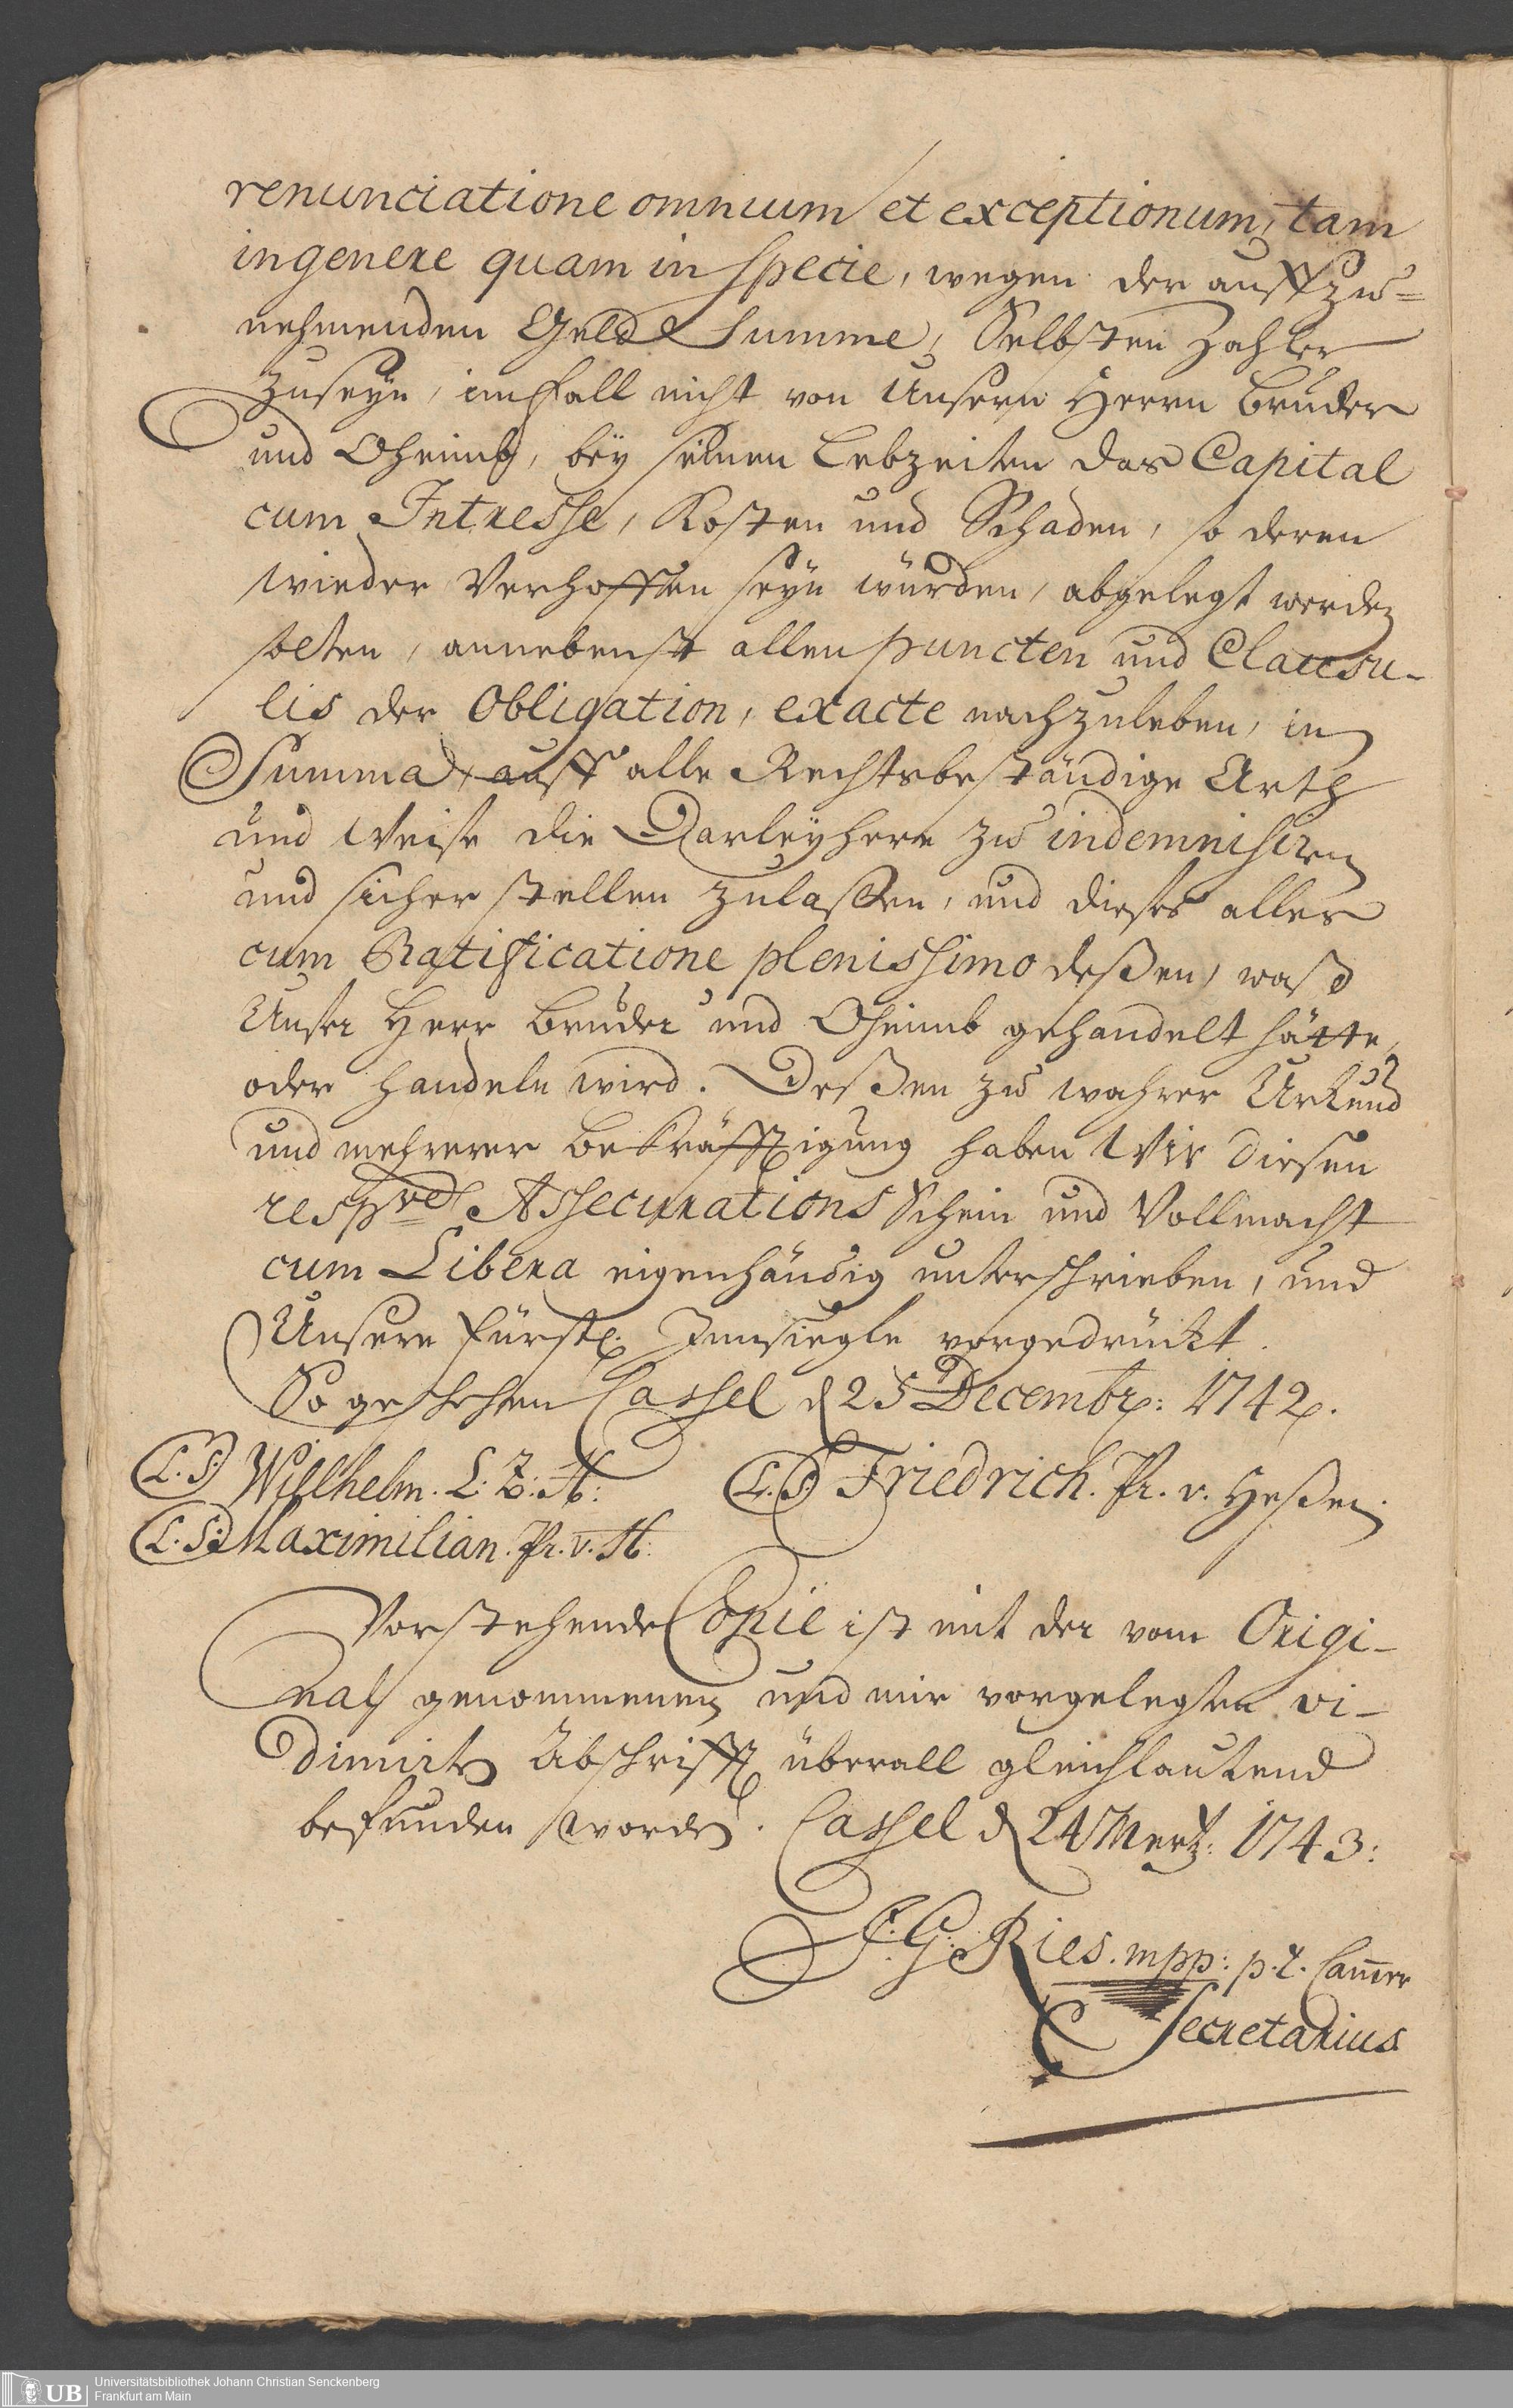 renunciatione omnium et exceptionum, tam
in genere quam in specie, wegen der auffzu=
nehmenden Geld Summe, Selbsten Zahler
zuseyn, im fall nicht von Unsern Herrn Bruder
und Oheimb, bey seinen Lebzeiten das Capital
cum Intresse, Kosten und Schaden, so deren
wieder Verhoffen seyn würden, abgelegt werden
solten, annebenst allen puncten und Clausu-
lis der Obligation, exacte nachzuleben, in
Summa, auff alle Rechtsbeständige Arth
und Weise die Darleyhere zu indemnisiren
und sicher stellen zulaßen, und dieses alles
cum Ratificatione plenissimo deßen, waß
Unser Herr Bruder und Oheimb gehandelt hätte,
oder handeln wird. Deßen zu wahrer Urkund
und mehrerer Bekräfftigung haben Wir diesen
respve Assecurations Schein und Vollmacht
cum Libera eigenhändig unterschrieben, und
Unsere fürstl. Innsiegle vorgedrückt.
So geschehen Cassel d 25 Decembr: 1742.
(L.S.) Wilhelm. L. Z. H: (L.S.) Friedrich. Pr. v. Heßen.
(L.S.) Maximilian. Pr. v. H.
Vorstehende Copie ist mit der vom Origi-
nal genommenen und mir vorgelegten vi-
dimirten Abschrifft überall gleichlautend
befunden worden. Cassel d 24 Mertz: 1743:
J. G. Ries. mpp: p.t. Cammer
Secretarius
UB
Universitätsbibliothek Johann Christian Senckenberg
Frankfurt am Main